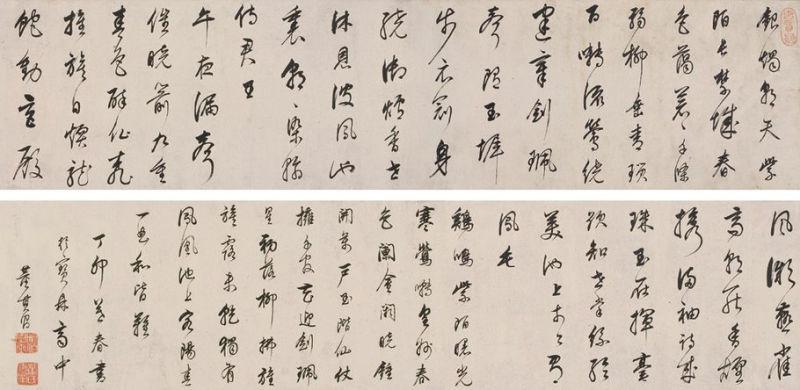 銀燭朝天紫
陌長禁城春
色藹蒼〻千條
弱柳垂青瑣
百囀流鶯繞
建章劍珮
聲隨玉墀
步衣冠身
繞御爐香共
沐恩波鳳池
裏朝〻染翰
侍君王
午夜漏聲
催曉箭九重
春色醉仙桃
旌旂日煖龍
蛇動宮殿
風微燕雀
高朝罷香煙
攜滿袖詩成
珠玉在揮毫
欲知世掌絲綸
美池上于今有
鳳毛
雞鳴紫陌曙光
寒鶯囀皇州春
色闌金闕曉鐘
開萬戶玉階仙仗
擁千官花迎劍珮
星初落柳拂旌
旂露未乾獨有
鳳凰池上客陽春
一曲和皆難
丁卯首春書
於寶鼎齋中
董其昌